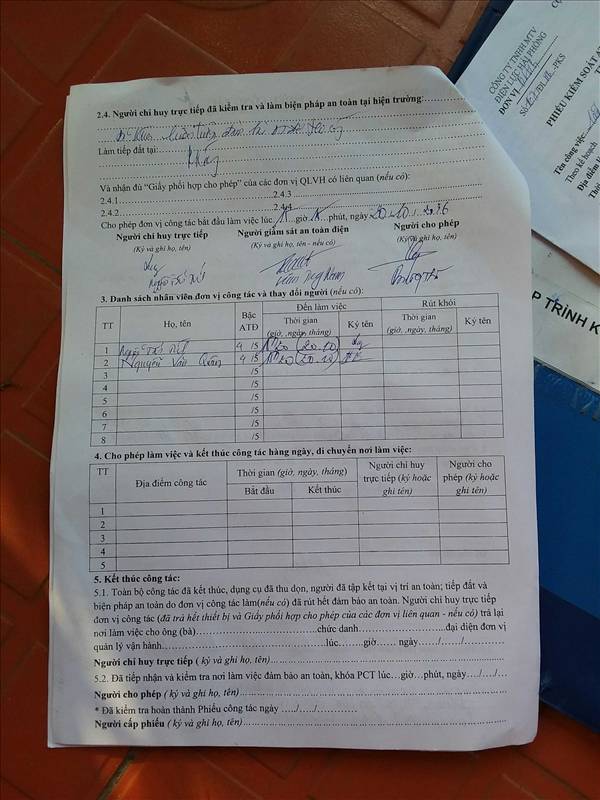 2.4. Người chỉ huy trực tiếp đã kiểm tra và làm biện pháp an toàn tại hiện trường:
Làm tiếp đất tại:
Và nhận đủ "Giấy phối hợp cho phép" của các đơn vị QLVH có liên quan (nếu có):
2.4.1 2.4.3
2.4.2 2.4.4
Cho phép đơn vị công tác bắt đầu làm việc lúc giờ phút, ngày 20.10.
Người chỉ huy trực tiếp Người giám sát an toàn điện Người cho phép
(Ký và ghi họ, tên) (Ký và ghi họ, tên - nếu có) (Ký và ghi họ, tên)
3. Danh sách nhân viên đơn vị công tác và thay đổi người (nếu có):
TT Họ, tên Bậc ATĐ Đến làm việc Rút khỏi
Thời gian (giờ, ngày, tháng) Ký tên Thời gian (giờ, ngày, tháng) Ký tên
1 4 /5
2 Nguyễn Văn 4 /5
3 /5
4 /5
5 /5
6 /5
7 /5
8 /5
4. Cho phép làm việc và kết thúc công tác hàng ngày, di chuyển nơi làm việc:
TT Địa điểm công tác Thời gian (giờ, ngày, tháng) Người chỉ huy trực tiếp (ký hoặc ghi tên) Người cho phép (ký hoặc ghi tên)
Bắt đầu Kết thúc
1
2
3
4
5
5. Kết thúc công tác:
5.1. Toàn bộ công tác đã kết thúc, dụng cụ đã thu dọn, người đã tập kết tại vị trí an toàn; tiếp đất và
biện pháp an toàn do đơn vị công tác làm(nếu có) đã rút hết đảm bảo an toàn. Người chỉ huy trực tiếp
đơn vị công tác (đã trả hết thiết bị và Giấy phối hợp cho phép của các đơn vị liên quan - nếu có) trả lại
nơi làm việc cho ông (bà) chức danh đại diện đơn vị
quản lý vận hành lúc giờ ngày / /
Người chỉ huy trực tiếp ( ký và ghi họ, tên)
5.2. Đã tiếp nhận và kiểm tra nơi làm việc đảm bảo an toàn, khóa PCT lúc giờ phút, ngày / /
Người cho phép ( ký và ghi họ, tên)
* Đã kiểm tra hoàn thành Phiếu công tác ngày / /
Người cấp phiếu ( ký và ghi họ, tên)
CÔNG TY TNHH MTV
ĐIỆN LỰC HẢI PHÒNG
ĐƠN VỊ
PHIẾU KIỂM SOÁT
Tên công việc:
Theo kế hoạch
Địa điểm
Thời
P TRÌNH K